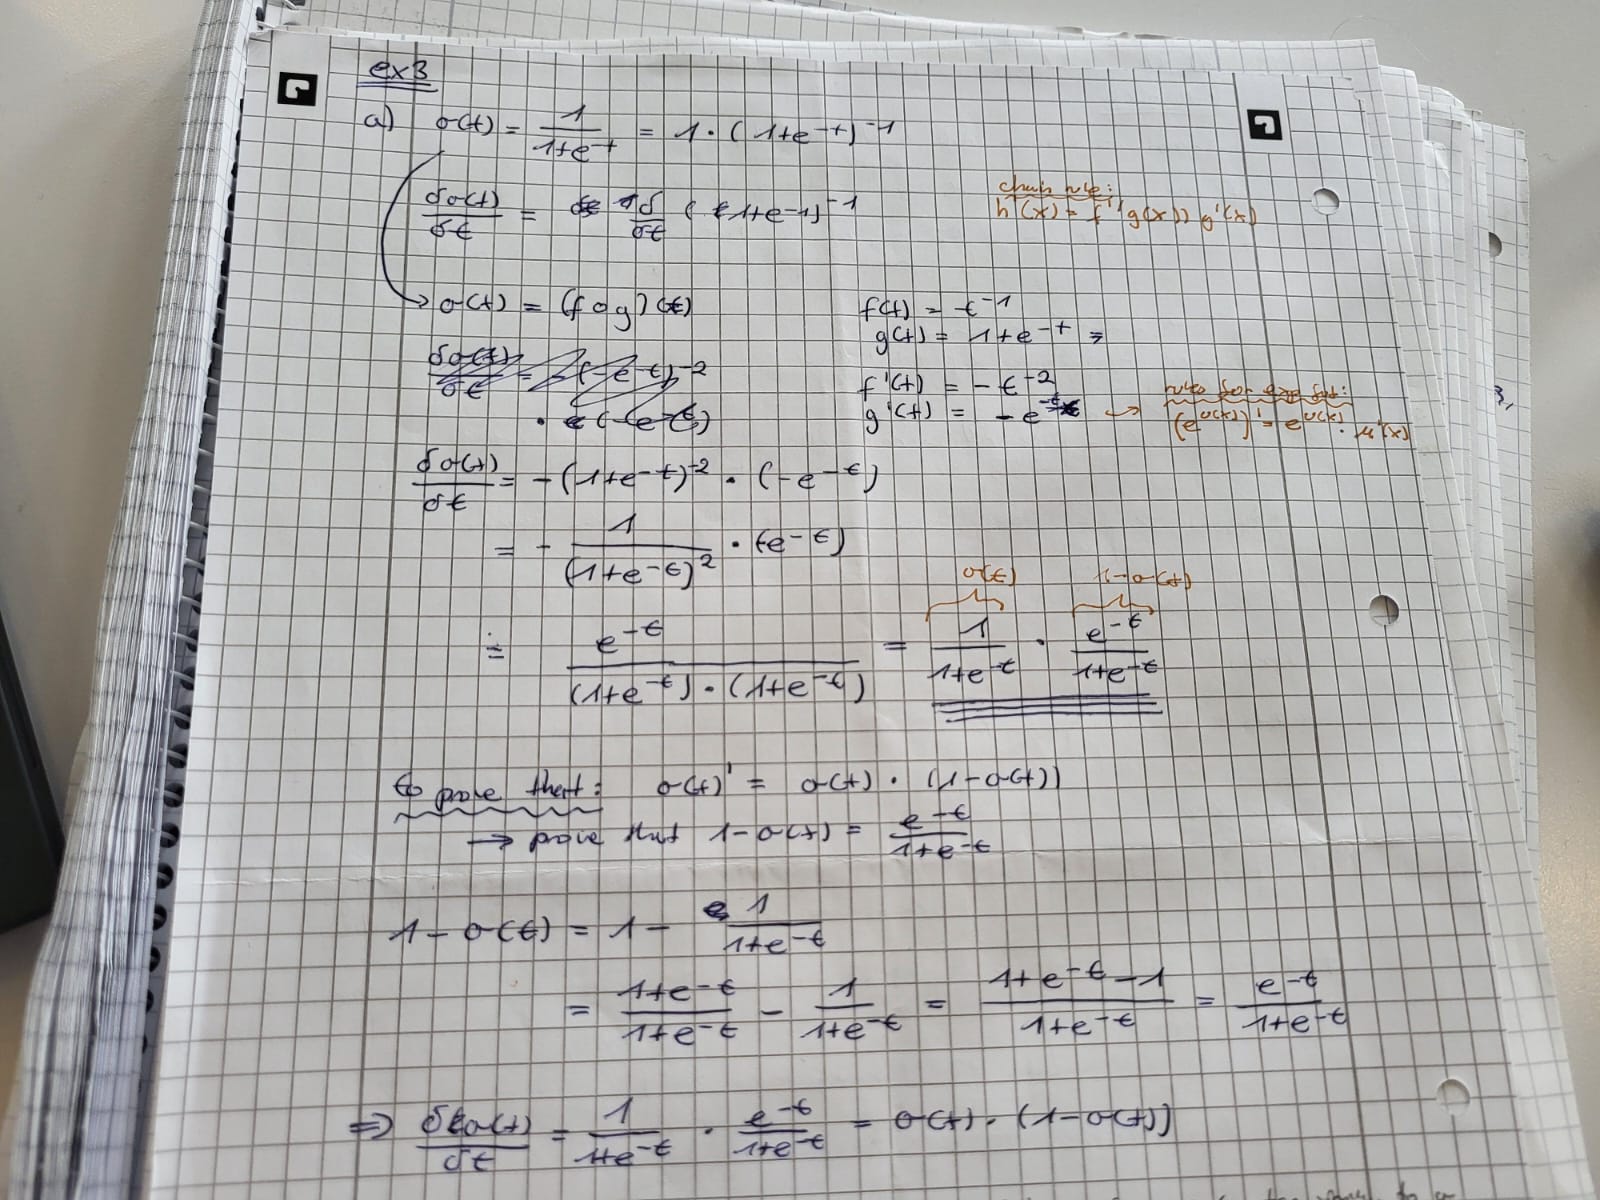 ex3
a) σ(t) = 1/(1+e^-t) = 1 · (1+e^-t)^-1
δσ(t)/δt = δ/δt (1+e^-1)^-1
chain rule:
h'(x) = f'(g(x)) g'(x)
→ σ(t) = (f o g)(t)
f(t) = t^-1
g(t) = 1+e^-t =>
f'(t) = -t^-2
g'(t) = -e^-t →
rules for exp fct:
(e^u(x))' = e^u(x) · u'(x)
3,
δσ(t)/δt = -(1+e^-t)^-2 · (-e^-t)
= - 1/(1+e^-t)^2 · (e^-t)
= e^-t/((1+e^-t) · (1+e^-t)) = 1/(1+e^-t) · e^-t/(1+e^-t)
σ(t) 1-σ(t)
to prove that: σ(t)' = σ(t) · (1-σ(t))
→ prove that 1-σ(t) = e^-t/(1+e^-t)
1-σ(t) = 1 - 1/(1+e^-t)
= (1+e^-t)/(1+e^-t) - 1/(1+e^-t) = (1+e^-t-1)/(1+e^-t) = e^-t/(1+e^-t)
=> δσ(t)/δt = 1/(1+e^-t) · e^-t/(1+e^-t) = σ(t) · (1-σ(t))